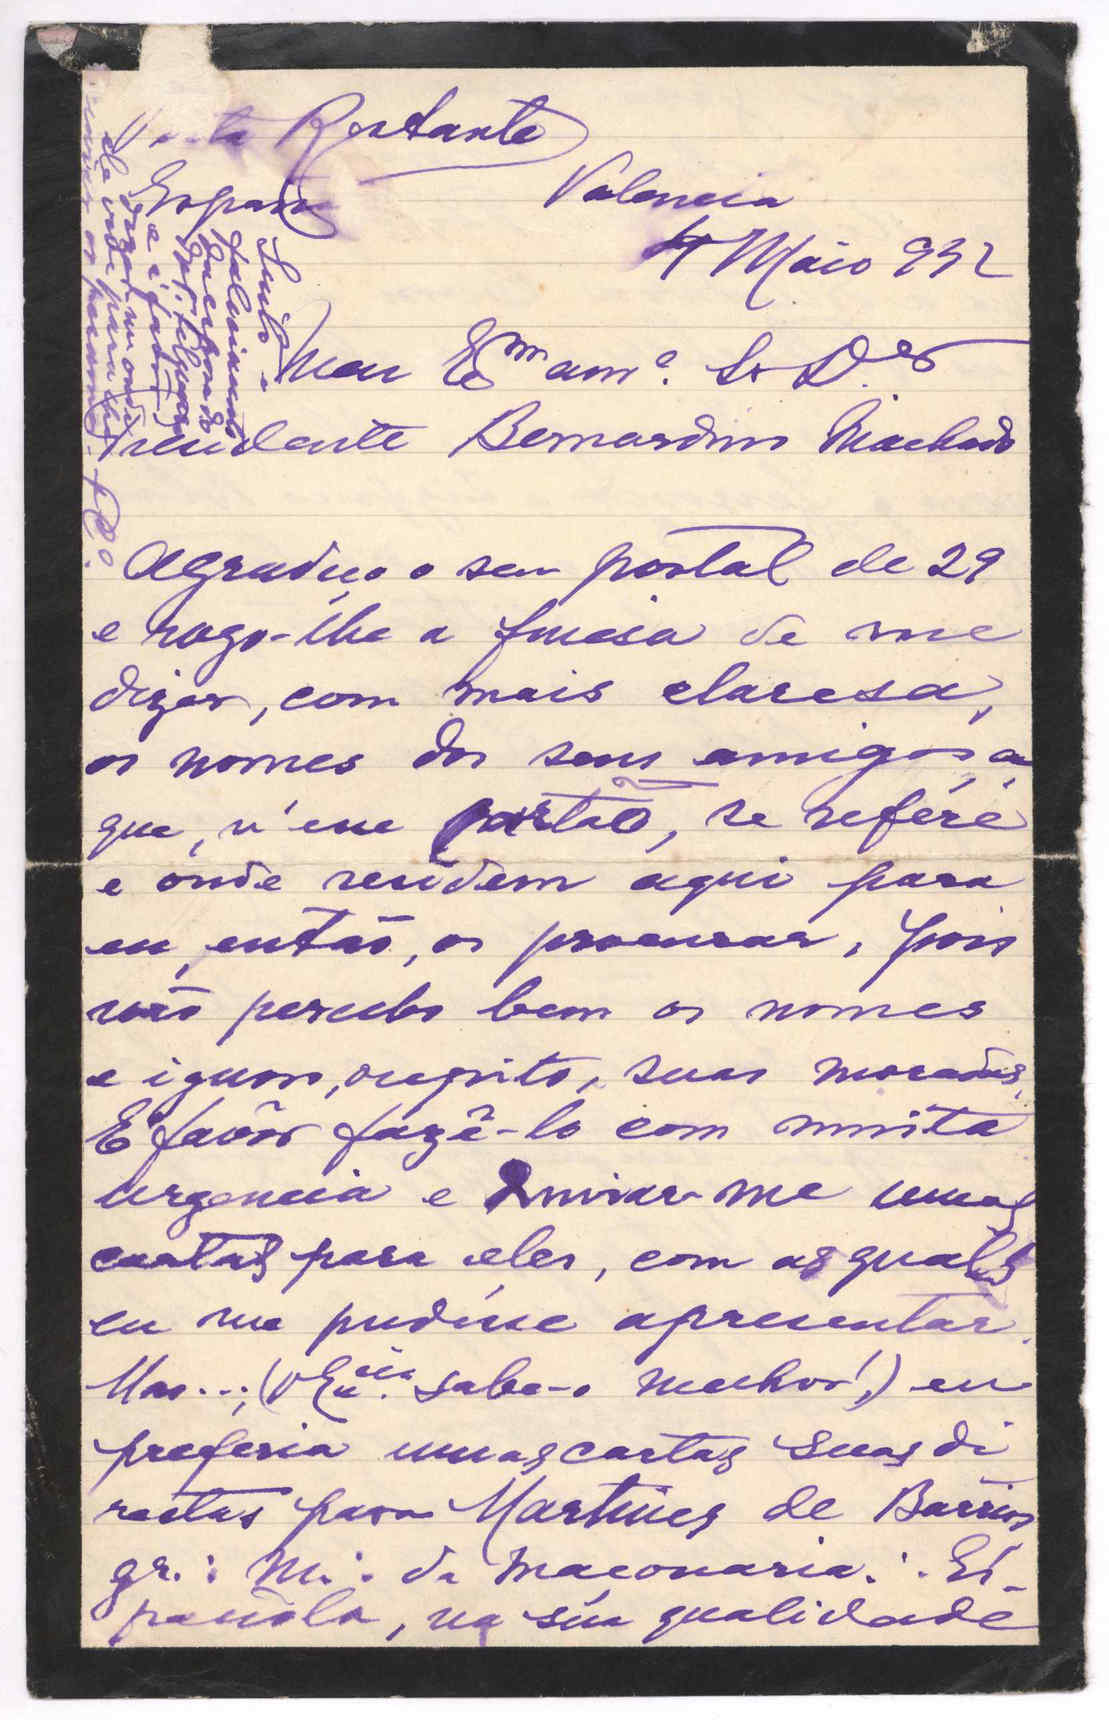 Posta Restante
España
Valencia
4 Maio 932
Meu Exmo amo. Sr Dor
Presidente Bernardino Machado
Agradeço o seu postal de 29
e rogo-lhe a fineza de me
dizer, com mais claresa,
os nomes dos seus amigos a
que, n'esse postal, se refére
e onde residem aqui para
eu, então, os procurar, pois
não percebo bem os nomes
e ignoro, repito, suas moradas.
É favôr fazê-lo com muita
urgencia e enviar-me umas
cartas para eles, com as quaes
eu me pudésse apresentar.
Mas...; (V Excia sabe-o melhor!,) eu
preferia umas cartas suas di
rectas para Martines de Barrios
gr.: M.: da Maconaria.:. Es-
panõla, na súa qualidade